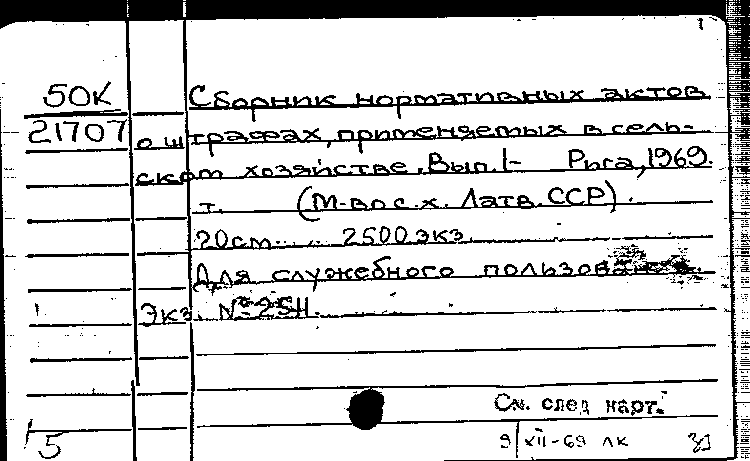 1
50К
21707
Сборник нормативных актов
о штрафах, применяемых в сель-
ском хозяйстве. Вып. 1- Рига, 1969.
т. (М-во с.х. Латв. ССР).
20 см. 2500 экз.
Для служебного пользования.
Экз. №2511.
См. след карт.
9/XII-69 ЛК
15